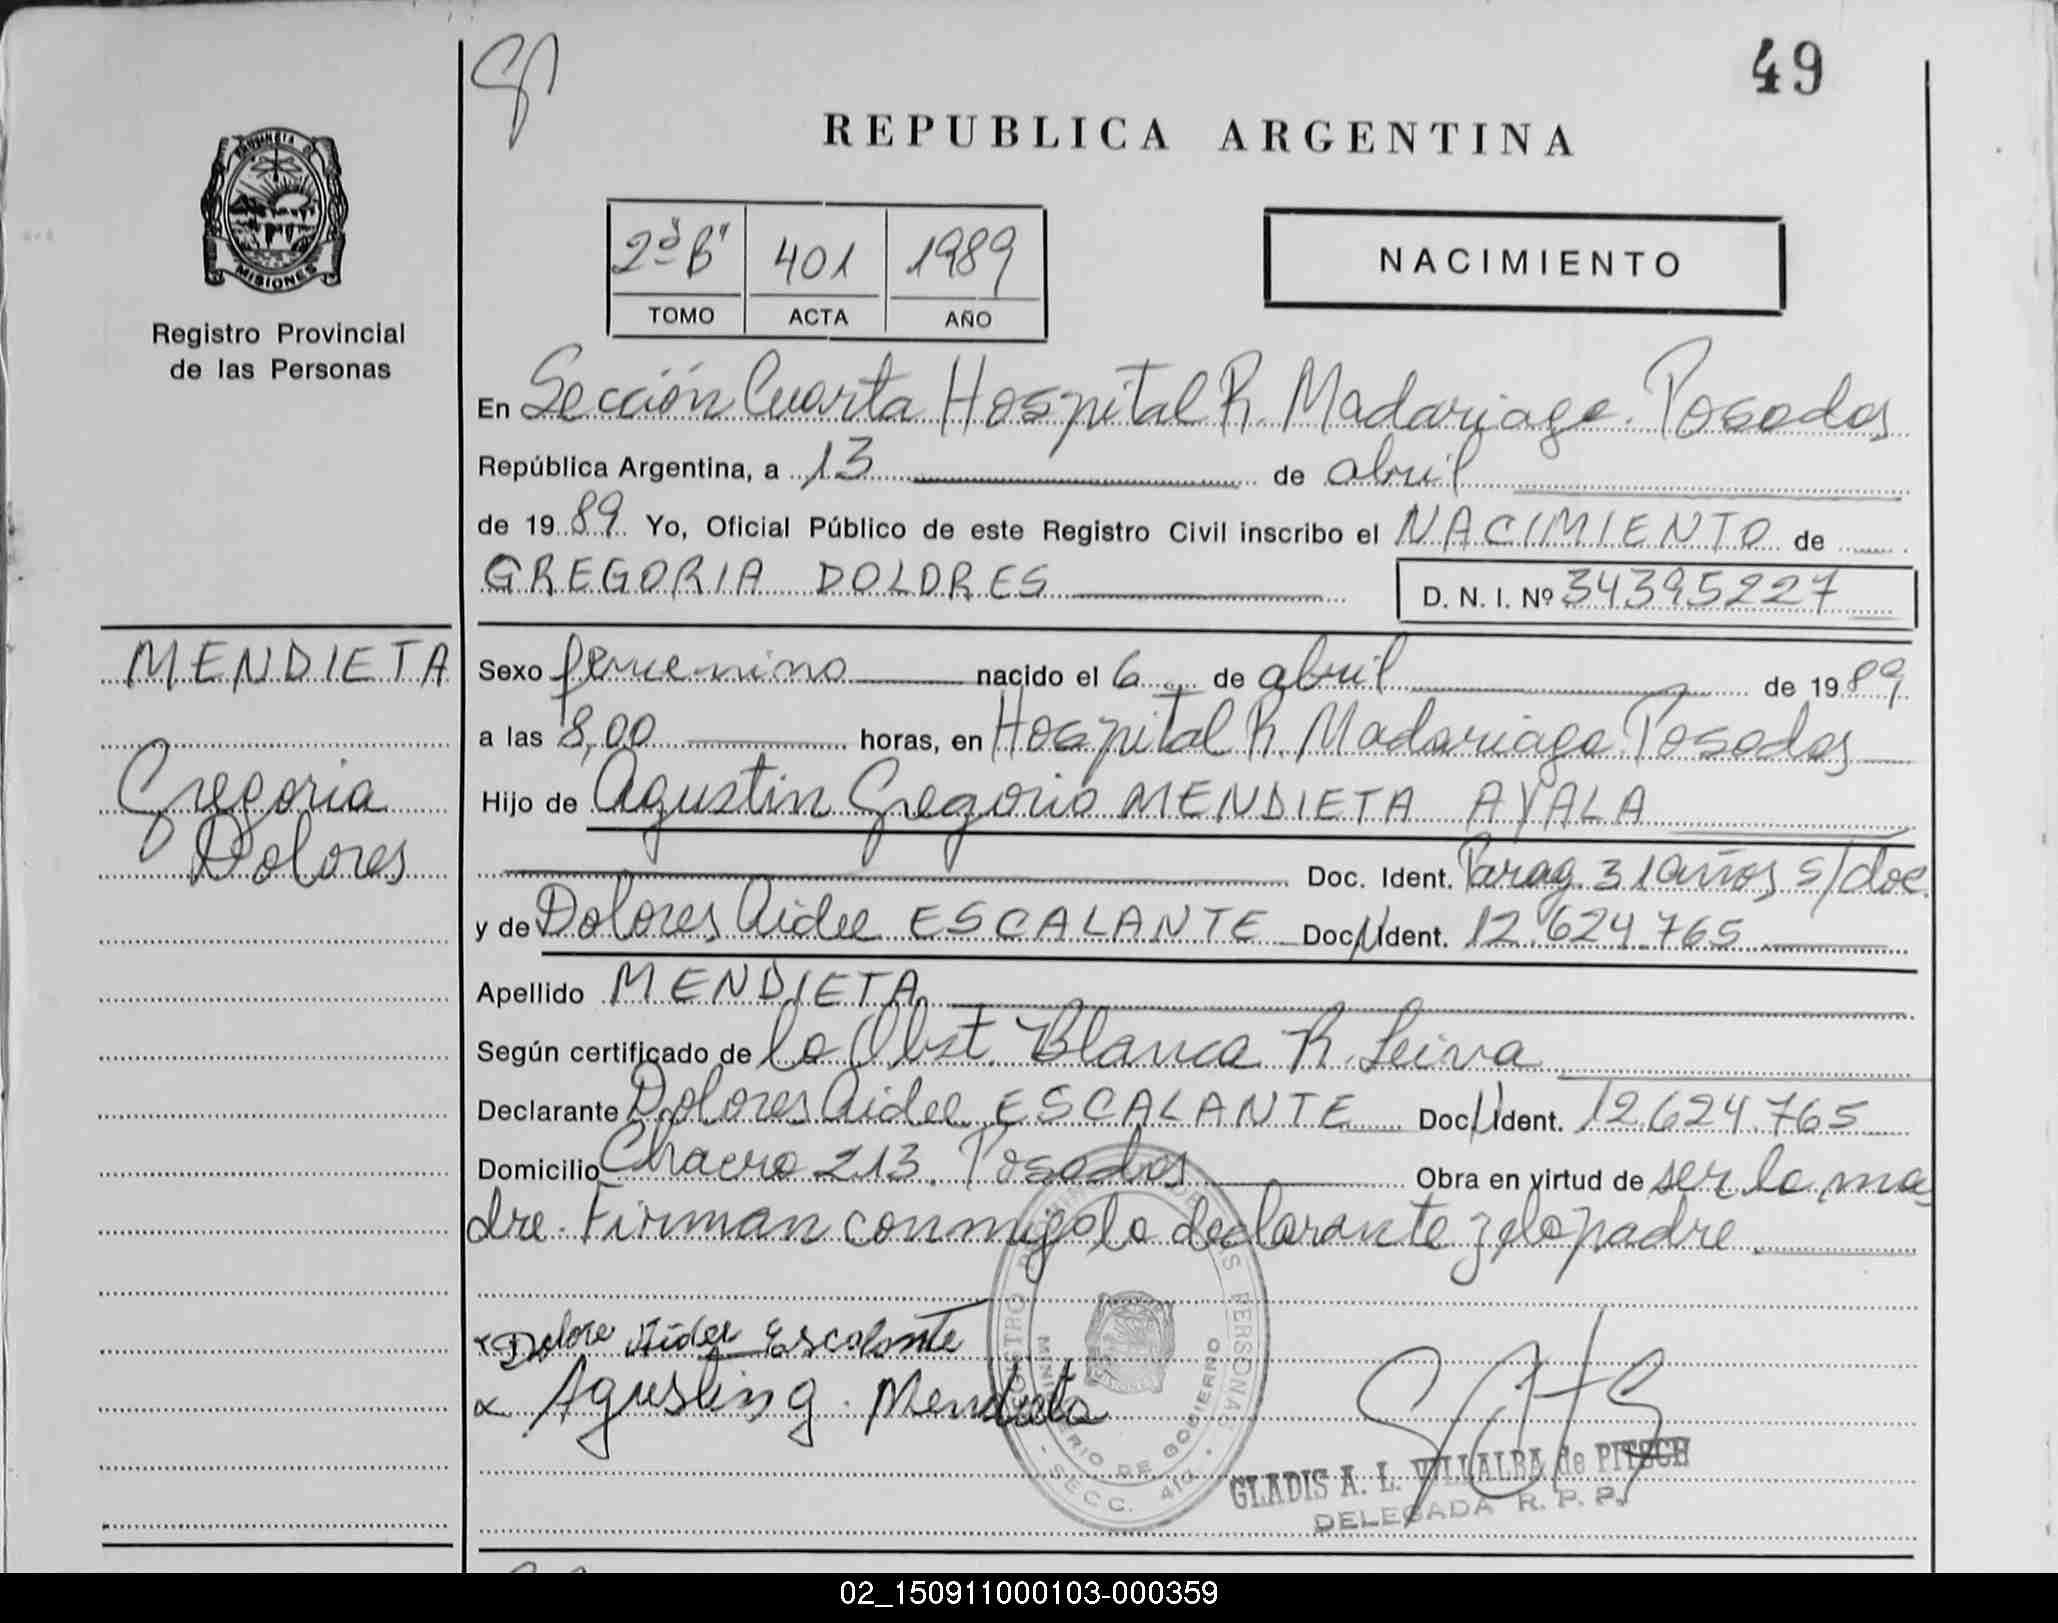 49
REPUBLICA ARGENTINA
PROVINCIA DE
MISIONES
Registro Provincial
de las Personas
2º B" 401 1989
TOMO ACTA AÑO
NACIMIENTO
En Sección Cuarta Hospital R. Madariaga. Posadas
República Argentina, a 13 de abril
de 1989 Yo, Oficial Público de este Registro Civil inscribo el NACIMIENTO de
GREGORIA DOLORES
D. N. I. Nº 34395227
MENDIETA
Gregoria
Dolores
Sexo femenino nacido el 6 de abril de 1989
a las 8,00 horas, en Hospital R. Madariaga. Posadas
Hijo de Agustin Gregorio MENDIETA AYALA
Doc. Ident. Parag. 31 años s/doc.
y de Dolores Aidee ESCALANTE Doc. Ident. 12.624.765
Apellido MENDIETA
Según certificado de la Obst. Blanca R. Leiva
Declarante Dolores Aidee ESCALANTE Doc. Ident. 12.624.765
Domicilio Chacra 213. Posadas Obra en virtud de ser la ma
dre. Firman conmigo la declarante y el padre
Dolore Aidee Escalante
Agusting. Mendieta
MINISTERIO DE GOBIERNO
SECC. 4ta.
GLADIS A. L. VILLALBA de PITSCH
DELEGADA R. P. P.
02_150911000103-000359